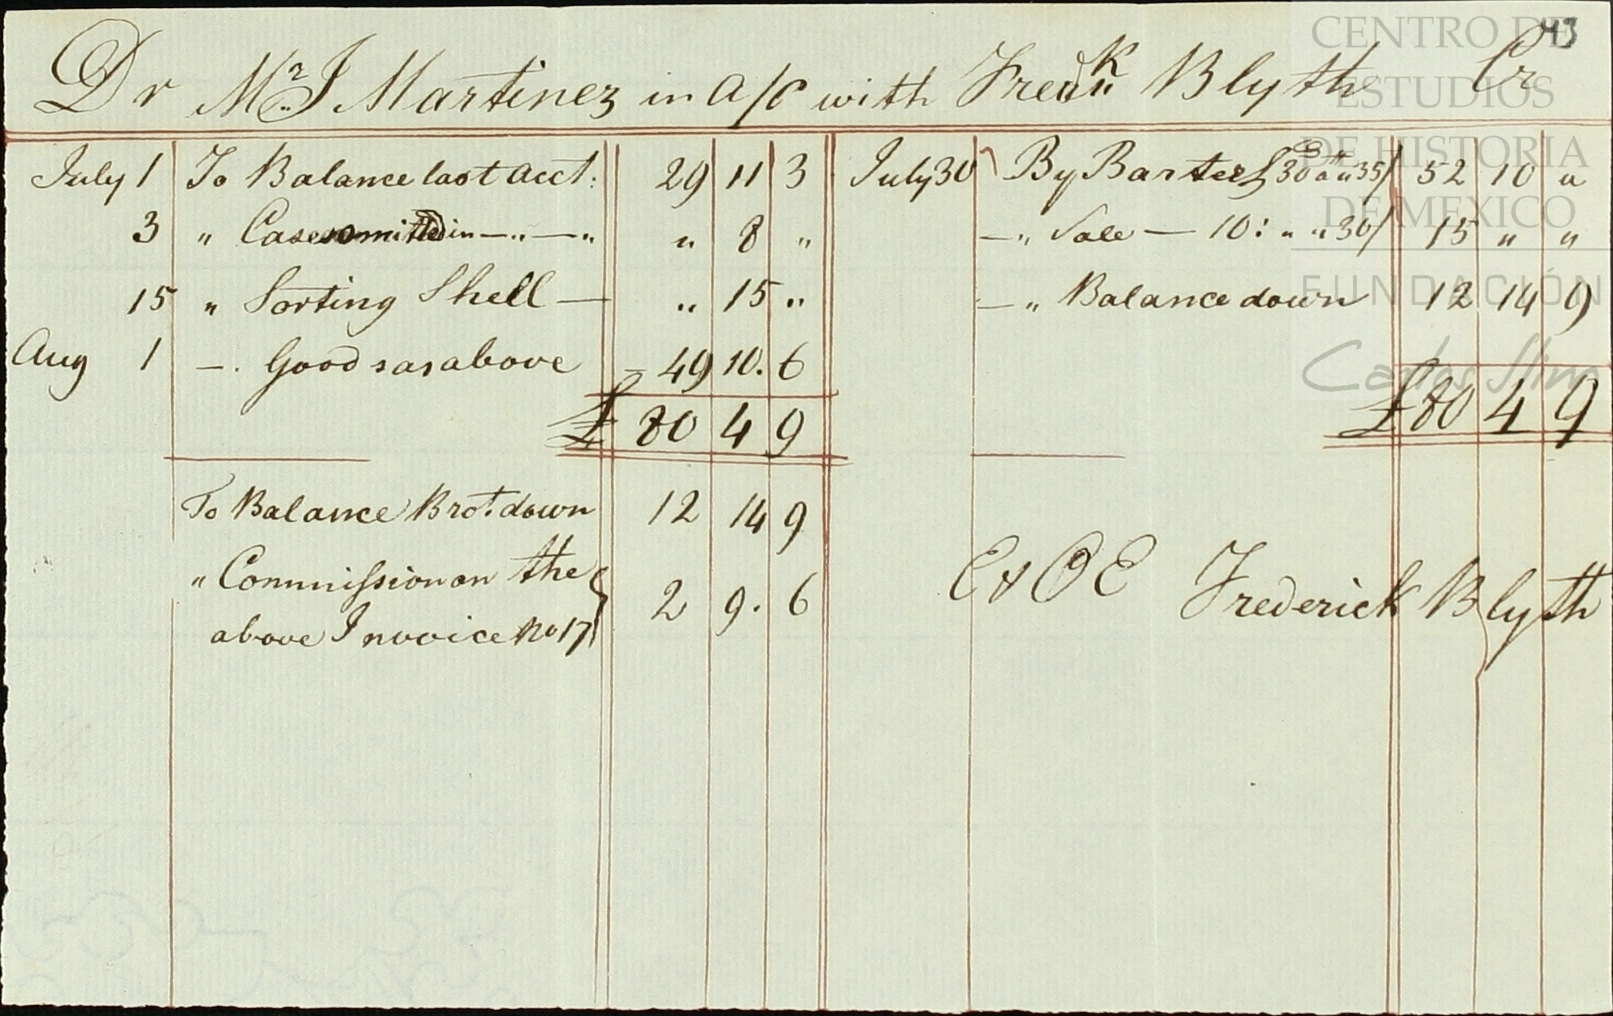 43
Dr Mr J Martinez in a/c with Fredk Blyth Cr
July 1 To Balance last acct: 29 11 3
3 " Cases omitted in — " — " " 8 "
15 " Sorting Shell — " 15 "
Aug 1 — . Goods as above — 49 10. 6
£ 80 4 9
To Balance Brot. down 12 14 9
" Commission on the
above Invoice No 17 } 2 9. 6
July 30 By Barter 30 a " 35/ 52 10 "
— " Sale — 10: " " 30/ 15 " "
— " Balance down 12 14 9
£ 80 4 9
E & O E Frederick Blyth
CENTRO DE
ESTUDIOS
DE HISTORIA
DE MEXICO
FUNDACIÓN
Carlos Slim